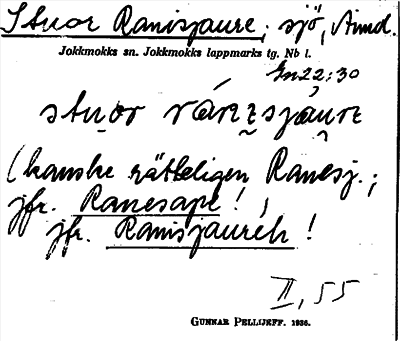 Stuor Ranisjaure, sjö, Amd.
Jokkmokks sn. Jokkmokks lappmarks tg. Nb l.
Gn22:30
stuor
(kanske rätteligen Ranesj.;
jfr. Ranesape!,
jfr. Ranisjaureh!
II, 55
GUNNAR PELLIJEFF. 1936.